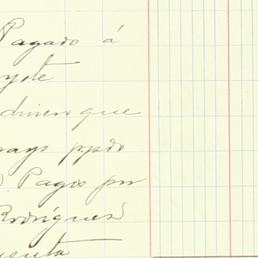 Pagado á
yste
dinero que
mayo ppdo
Pagos por
Rodríguez
cuenta